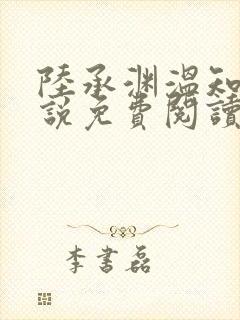 陸承渊溫知
說免費閱讀
李書磊